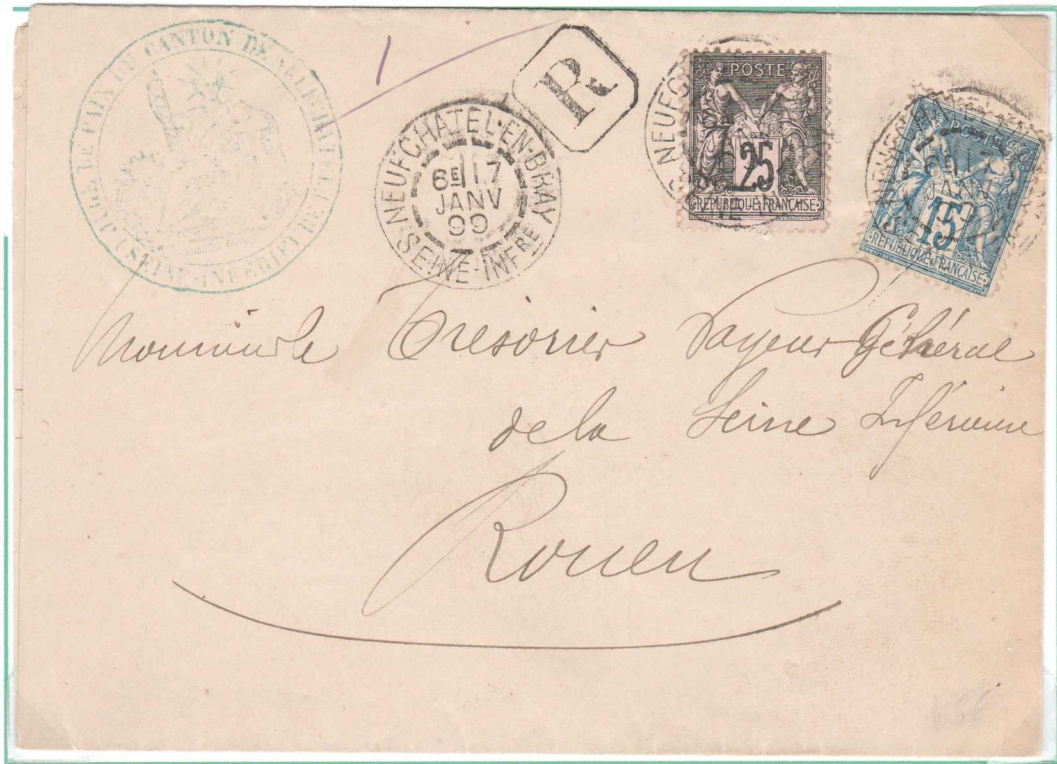 JUGE DE PAIX DU CANTON DE NEUFCHATEL
(SEINE-INFERIEURE)
R
NEUFCHATEL-EN-BRAY
6E 17
JANV
99
SEINE-INFRE
NEUFC
POSTE
25
REPUBLIQUE FRANCAISE
15
REPUBLIQUE FRANCAISE
Monsieur le Trésorier Payeur Général
de la Seine Inférieure
Rouen